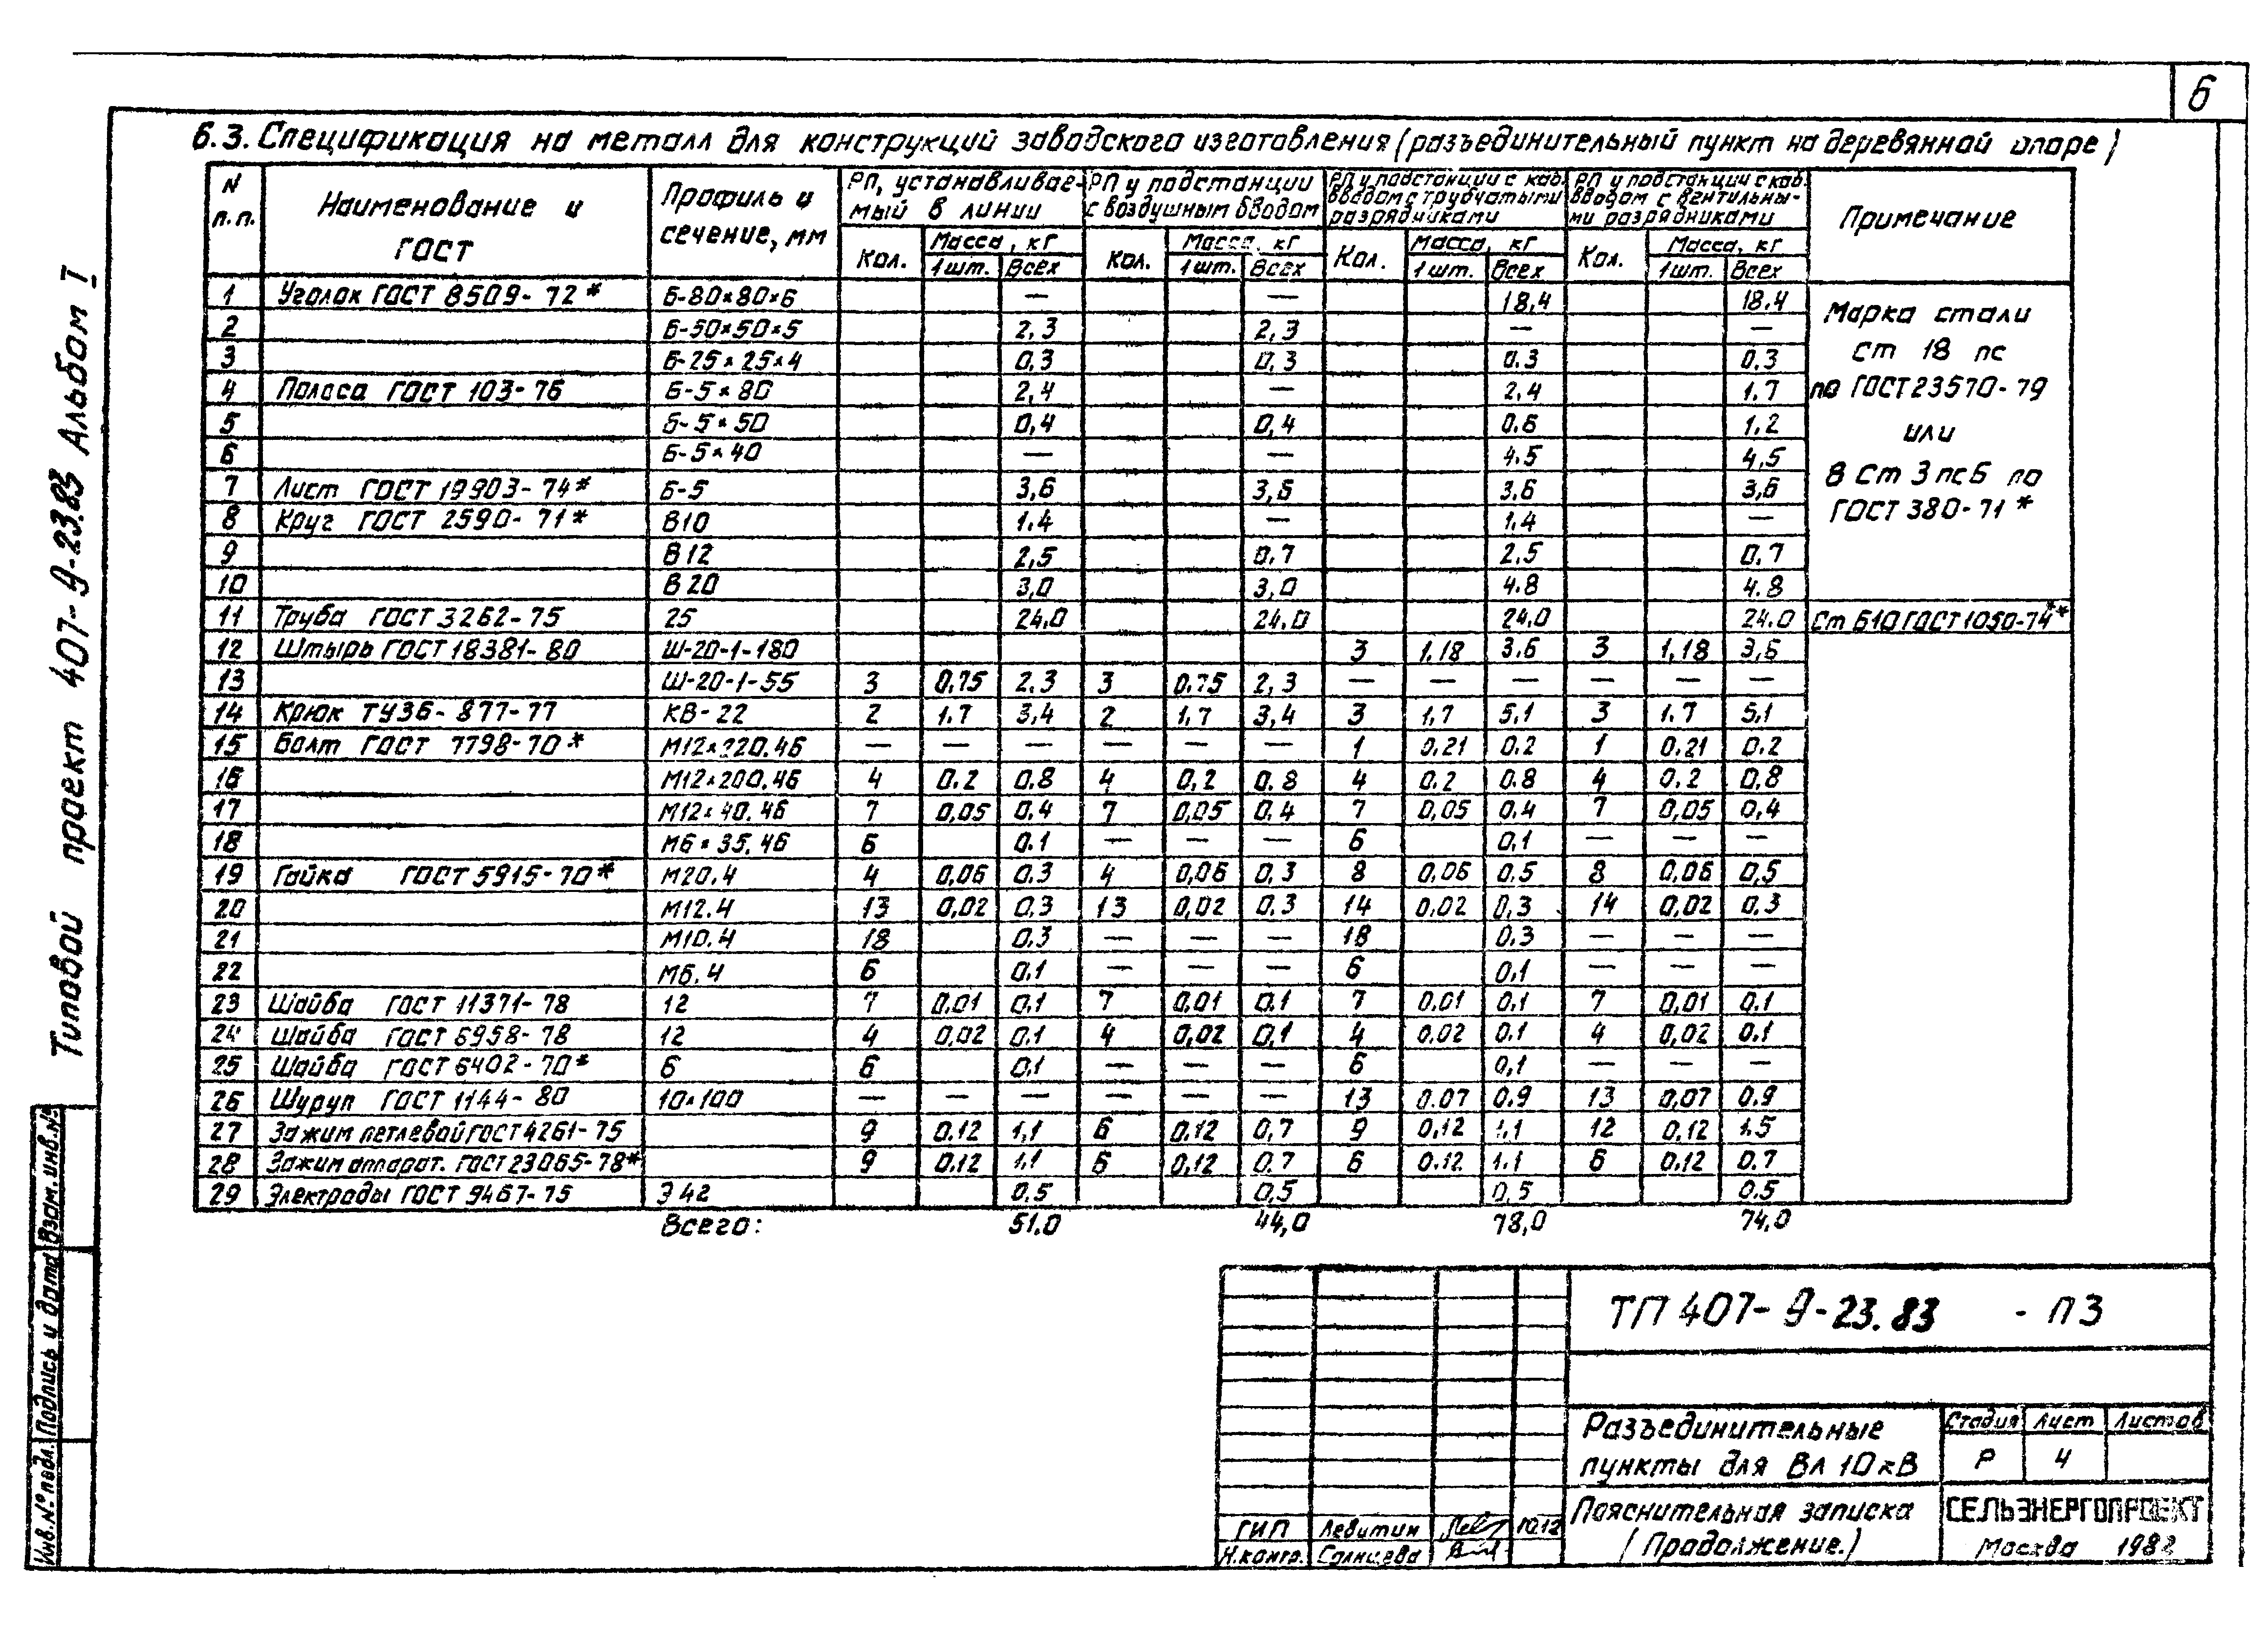 6
6.3. Спецификация на металл для конструкций заводского изготовления (разъединительный пункт на деревянной опоре)
N п.п. | Наименование и ГОСТ | Профиль и сечение, мм | РП, устанавливаемый в линии | РП у подстанции с воздушным вводом | РП у подстанции с каб. вводом с трубчатыми разрядниками | РП у подстанции с каб. вводом с вентильными разрядниками | Примечание
Кол. | Масса, кг | Кол. | Масса, кг | Кол. | Масса, кг | Кол. | Масса, кг
1 шт. | Всех | 1 шт. | Всех | 1 шт. | Всех | 1 шт. | Всех
1 Уголок ГОСТ 8509-72* Б-80×80×6 — — 18,4 18.4
2 Б-50×50×5 2,3 2,3 — —
3 Б-25×25×4 0,3 0,3 0.3 0.3
4 Полоса ГОСТ 103-76 Б-5×80 2,4 — 2,4 1.7
5 Б-5×50 0,4 0,4 0.6 1.2
6 Б-5×40 — — 4.5 4,5
7 Лист ГОСТ 19903-74* Б-5 3,6 3,6 3.6 3,6
8 Круг ГОСТ 2590-71* В10 1.4 — 1,4 —
9 В12 2,5 0,7 2,5 0,7
10 В20 3,0 3,0 4.8 4.8
11 Труба ГОСТ 3262-75 25 24,0 24,0 24,0 24,0
12 Штырь ГОСТ 18381-80 Ш-20-1-180 3 1,18 3.6 3 1,18 3,6
13 Ш-20-1-55 3 0.75 2.3 3 0.75 2,3 — — — — — —
14 Крюк ТУ36-877-77 КВ-22 2 1.7 3,4 2 1,7 3,4 3 1,7 5,1 3 1.7 5,1
15 Болт ГОСТ 7798-70* М12×220.46 — — — — — — 1 0.21 0.2 1 0.21 0.2
16 М12×200.46 4 0.2 0.8 4 0,2 0.8 4 0.2 0.8 4 0.2 0,8
17 М12×40.46 7 0,05 0.4 7 0,05 0,4 7 0,05 0,4 7 0,05 0,4
18 М6×35.46 6 0.1 — — — 6 0,1 — — —
19 Гайка ГОСТ 5915-70* М20.4 4 0,06 0.3 4 0,06 0,3 8 0,06 0.5 8 0,06 0,5
20 М12.4 13 0,02 0,3 13 0,02 0.3 14 0.02 0,3 14 0,02 0.3
21 М10.4 18 0.3 — — — 18 0.3 — — —
22 М6.4 6 0.1 — — — 6 0,1 — — —
23 Шайба ГОСТ 11371-78 12 7 0.01 0.1 7 0,01 0.1 7 0.01 0,1 7 0,01 0.1
24 Шайба ГОСТ 6958-78 12 4 0,02 0.1 4 0,02 0,1 4 0.02 0.1 4 0,02 0.1
25 Шайба ГОСТ 6402-70* 6 6 0.1 — — — 6 0,1 — — —
26 Шуруп ГОСТ 1144-80 10×100 — — — — — — 13 0.07 0.9 13 0,07 0.9
27 Зажим петлевой ГОСТ 4261-75 9 0.12 1,1 6 0.12 0,7 9 0,12 1.1 12 0.12 1.5
28 Зажим аппарат. ГОСТ 23065-78* 9 0.12 1.1 6 0,12 0.7 6 0.12 1.1 6 0.12 0.7
29 Электроды ГОСТ 9467-75 Э42 0.5 0,5 0,5 0.5
Всего: 51.0 44,0 78,0 74.0
Марка стали
Ст 18 пс
по ГОСТ 23570-79
или
В Ст 3 пс6 по
ГОСТ 380-71*
Ст Б10 ГОСТ 1050-74**
Типовой проект 407-9-23.83 Альбом I
Взам. инв. №
Подпись и дата
Инв. № подл.
ТП 407-9-23.83 - ПЗ
Разъединительные
пункты для ВЛ 10кВ
Стадия Лист Листов
Р 4
ГИП Левитин 10.12
Н.контр. Солнцева
Пояснительная записка
(Продолжение.)
СЕЛЬЭНЕРГОПРОЕКТ
Москва 1982